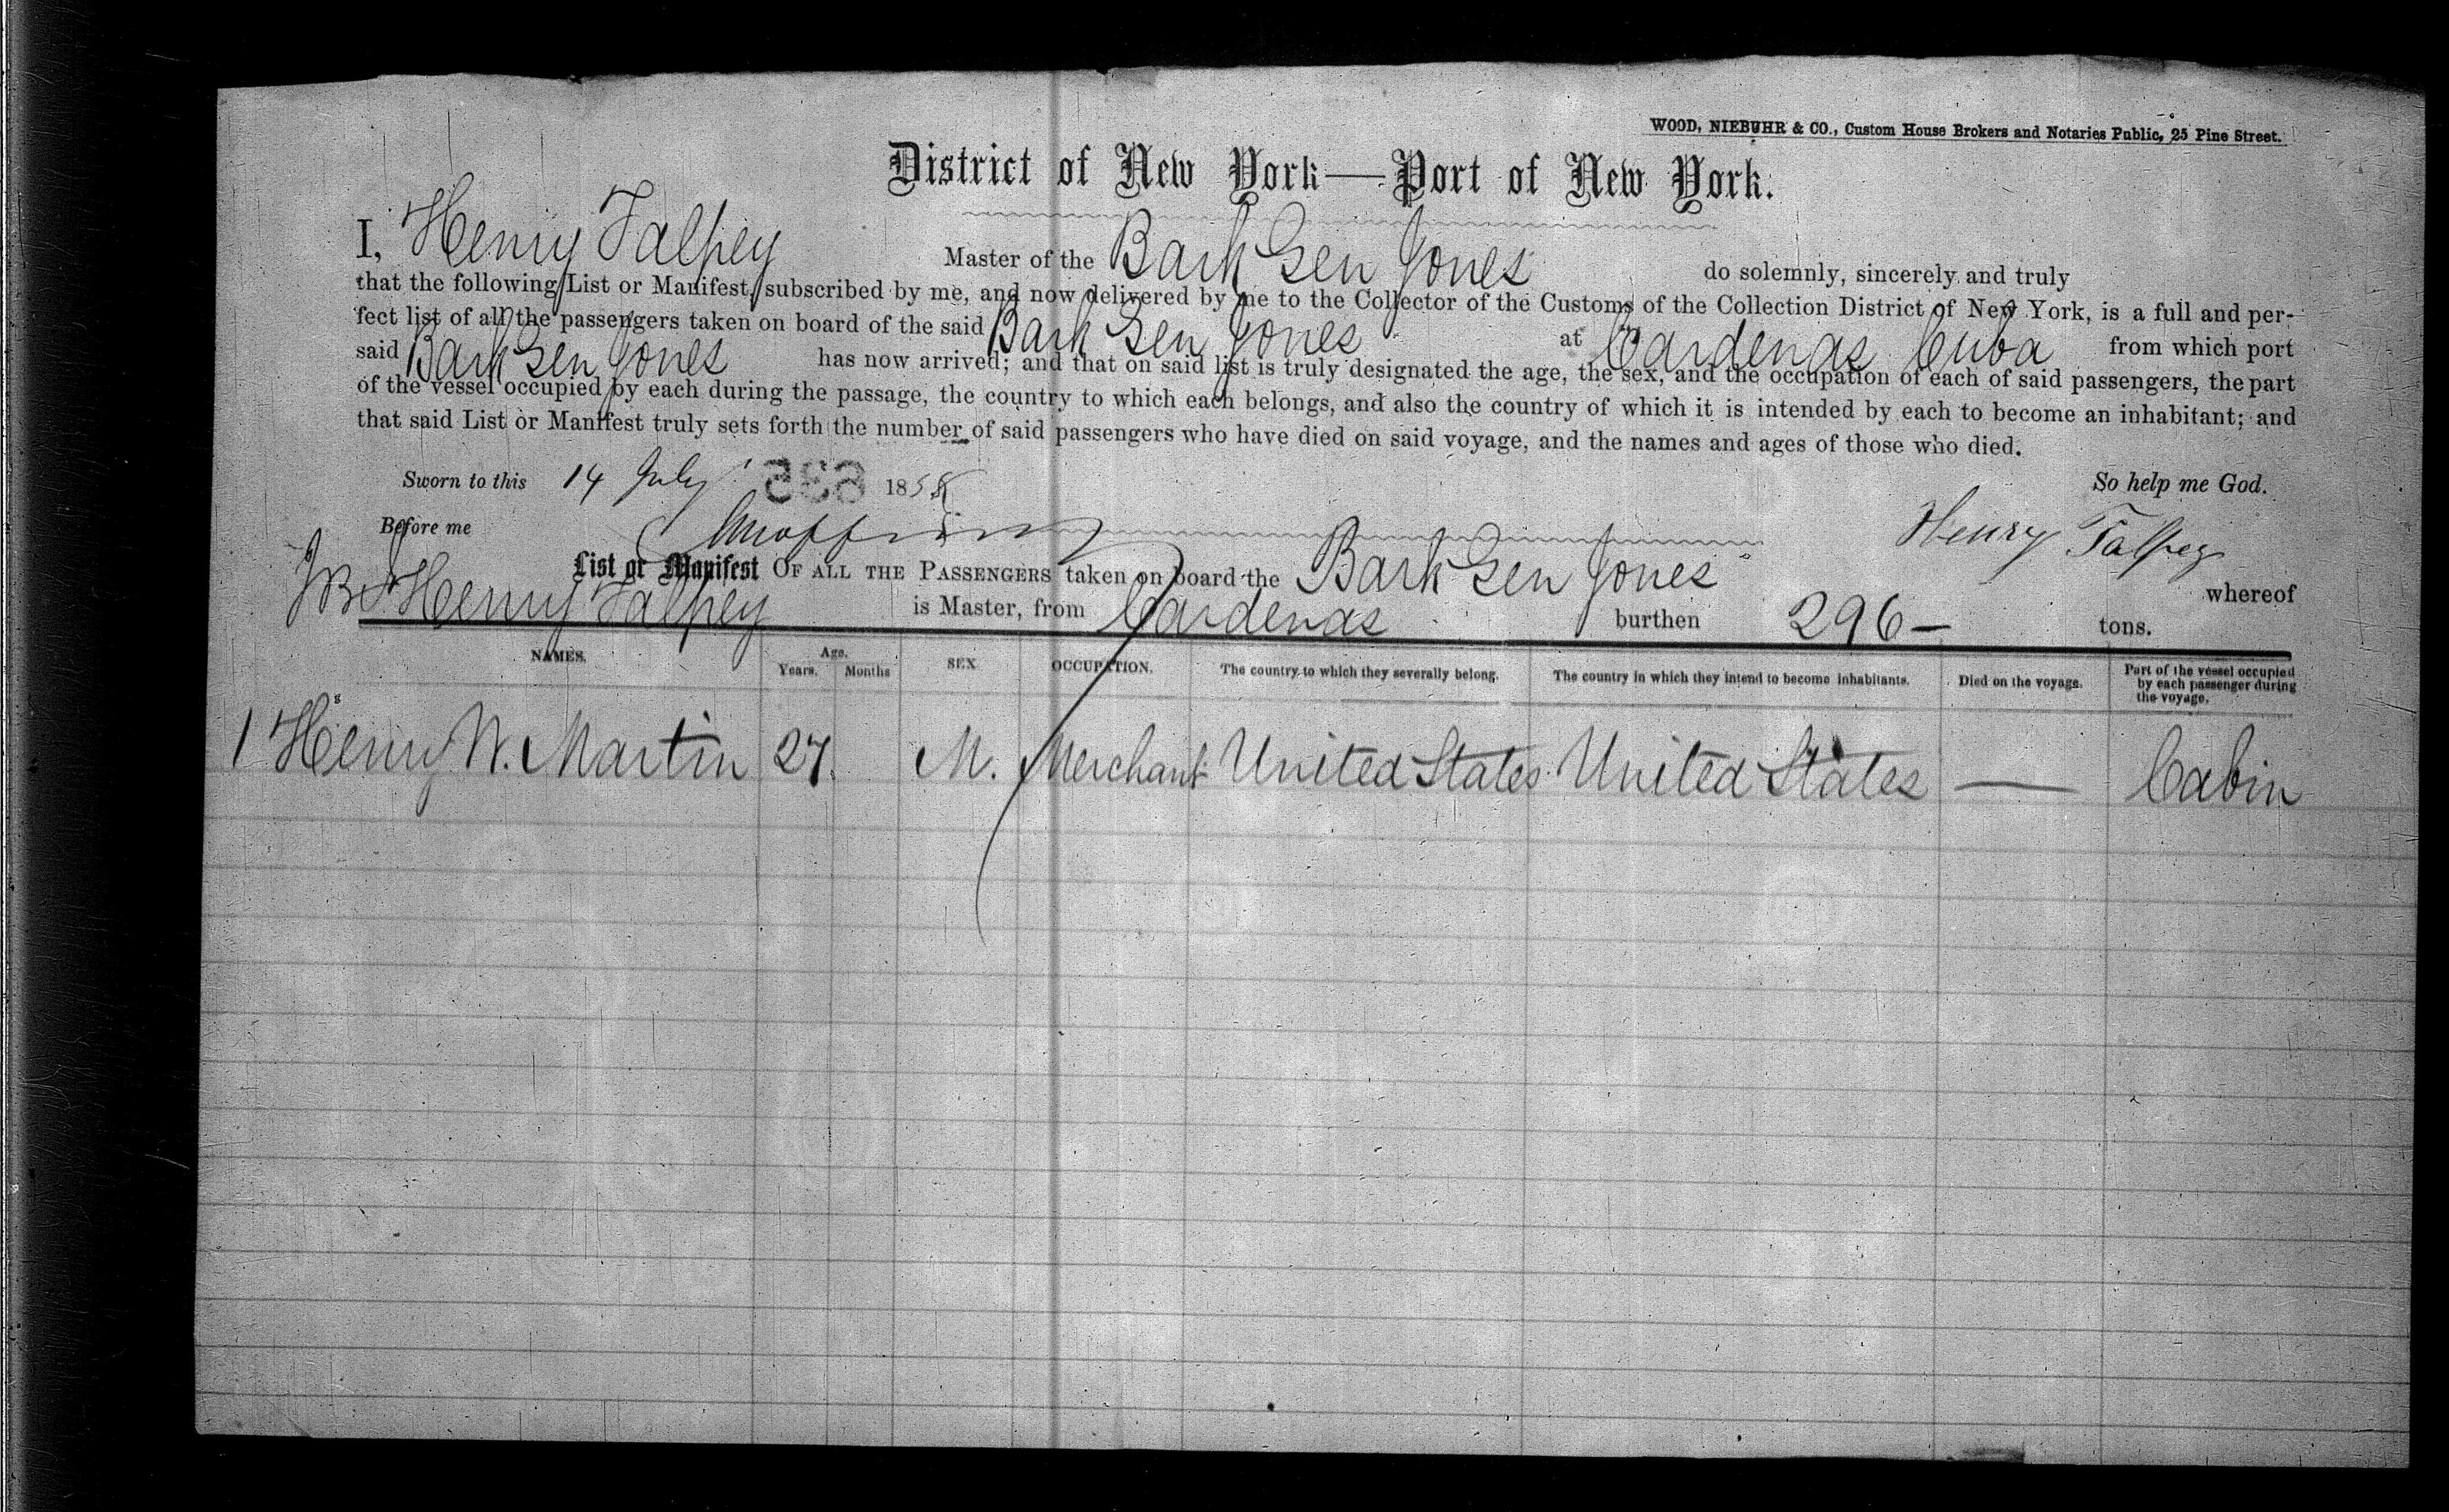 WOOD, NIEBUHR & CO., Custom House Brokers and Notaries Public, 25 Pine Street.
District of New York—Port of New York.
I, Henry Talpey Master of the Bark Gen Jones do solemnly, sincerely and truly
that the following List or Manifest, subscribed by me, and now delivered by me to the Collector of the Customs of the Collection District of New York, is a full and per-
fect list of all the passengers taken on board of the said Bark Gen Jones at Cardenas Cuba from which port
said Bark Gen Jones has now arrived; and that on said list is truly designated the age, the sex, and the occupation of each of said passengers, the part
of the vessel occupied by each during the passage, the country to which each belongs, and also the country of which it is intended by each to become an inhabitant; and
that said List or Manifest truly sets forth the number of said passengers who have died on said voyage, and the names and ages of those who died.
Sworn to this 14 July 1858 So help me God.
Before me Henry Talpey
List or Manifest OF ALL THE PASSENGERS taken on board the Bark Gen Jones whereof
Henry Talpey is Master, from Cardenas burthen 296— tons.
NAMES. Age. Years. Months SEX OCCUPATION. The country to which they severally belong. The country in which they intend to become inhabitants. Died on the voyage. Part of the vessel occupied by each passenger during the voyage.
1 Henry W. Martin 27 M. Merchant United States United States — Cabin